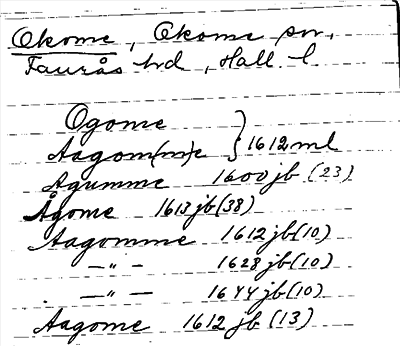 Okome, Okome sn,
Faurås hd, Hall. l.
Ogome
Aagom(m)e } 1612 ml
Agumme 1600 jb (23)
Ågome 1613 jb (38)
Aagomme 1612 jb (10)
—"— 1628 jb (10)
—"— 1644 jb (10)
Aagome 1612 jb (13)